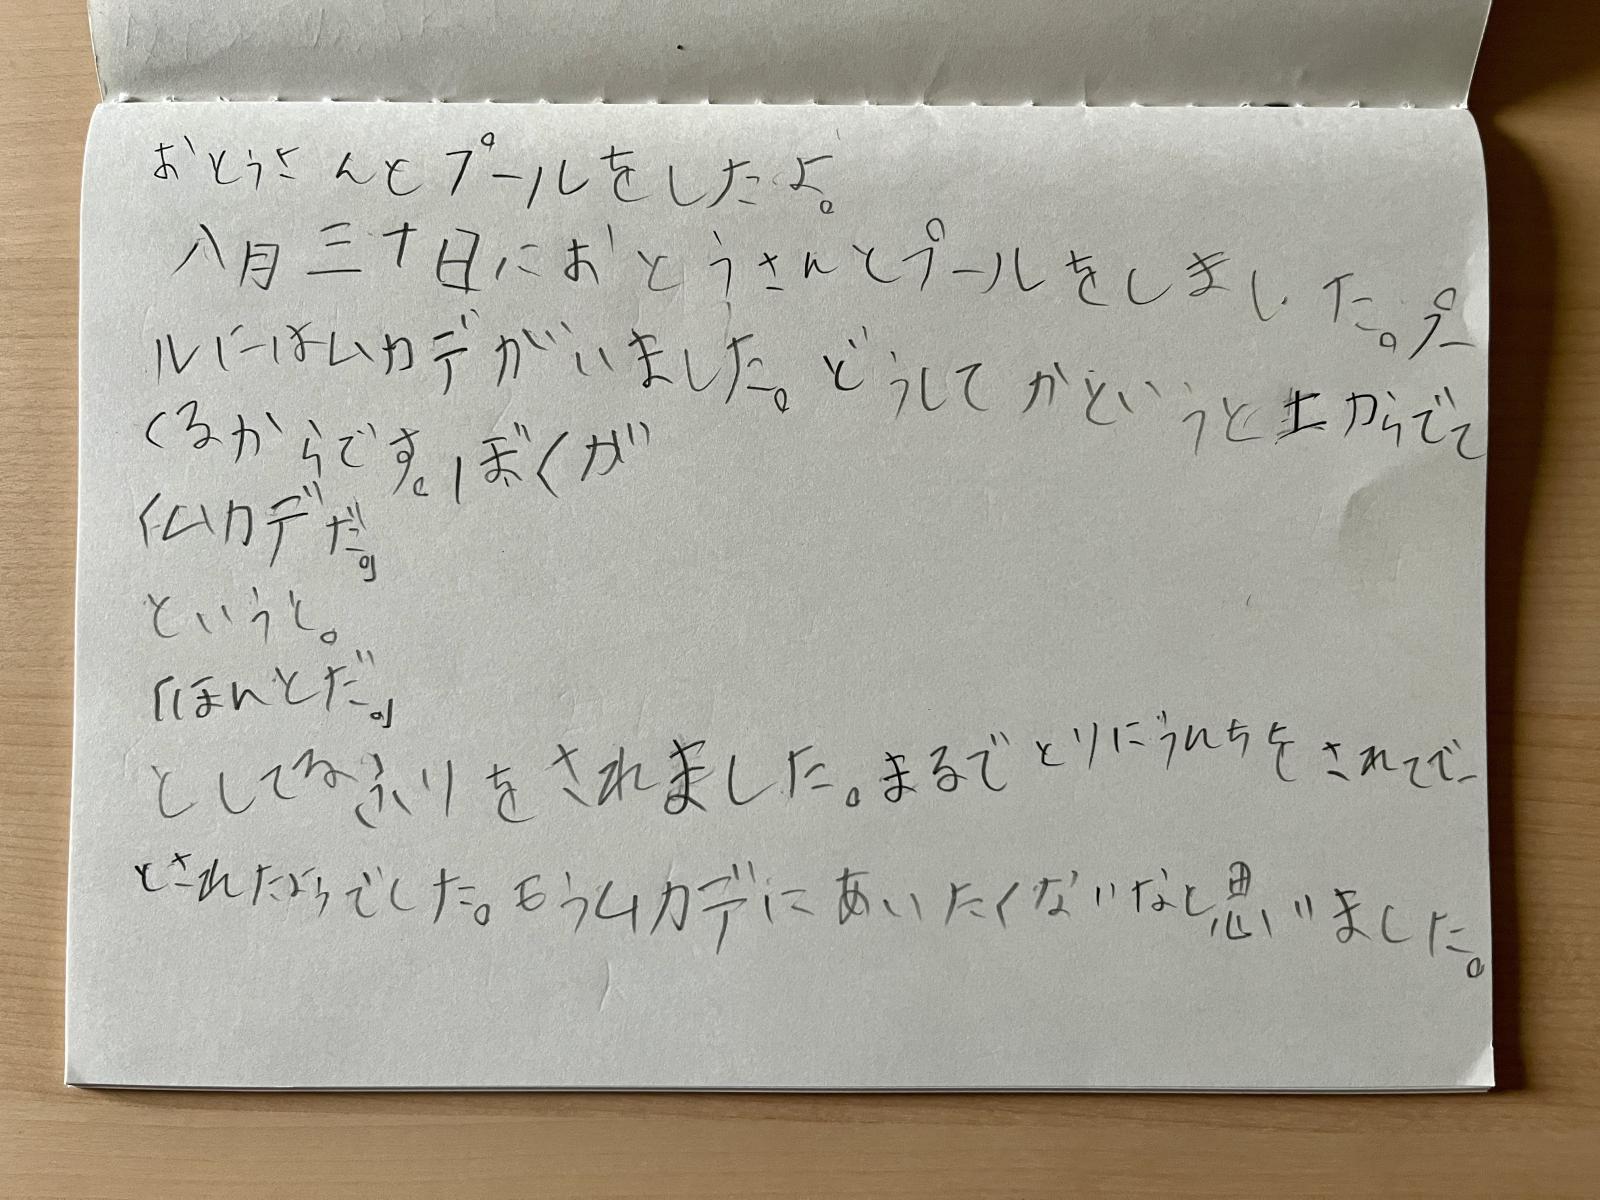 おとうさんとプールをしたよ。
八月三十日におとうさんとプールをしました。プー
ルにはムカデがいました。どうしてかというと土からでて
くるからです。ぼくが
「ムカデだ。」
というと。
「ほんとだ。」
としてるふりをされました。まるでとりにうんちをされてでー
とされたようでした。もうムカデにあいたくないなと思いました。